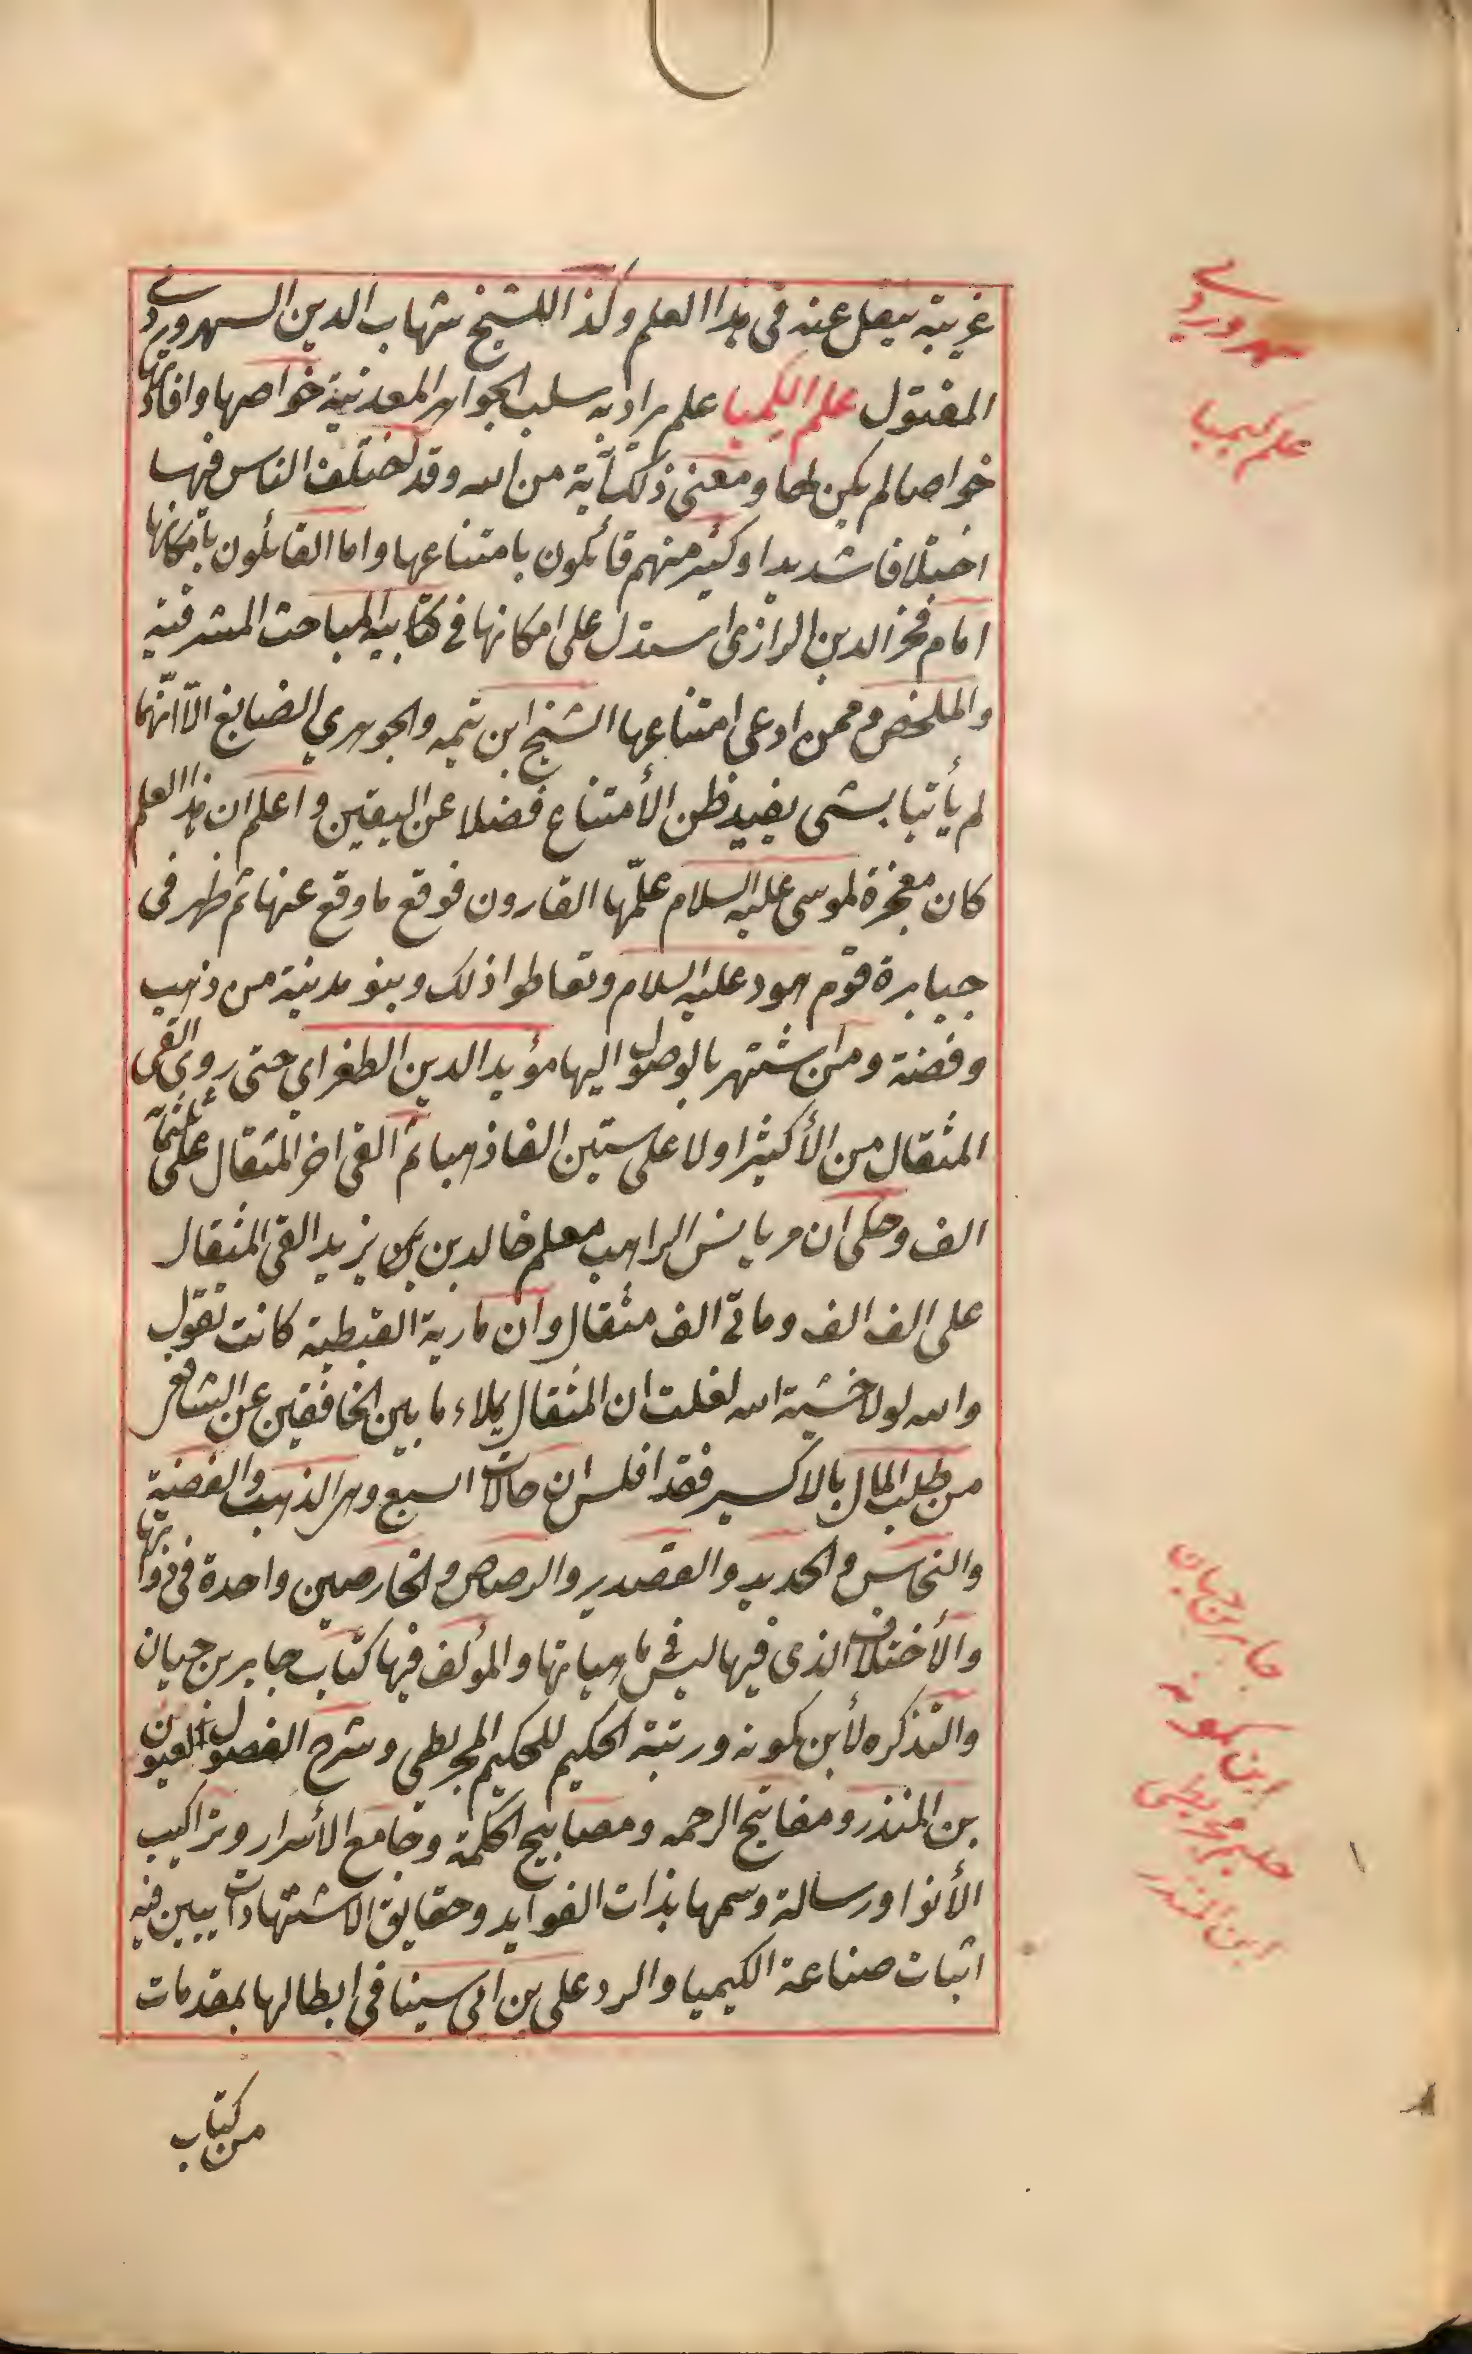 غريبة ينقل عنه فى هذا العلم وكذا للشيخ شهاب الدين السهروردي
المقتول علم الكيميا علم يراد به سلب الجواهر المعدنية خواصها وافادتها
خواصا لم يكن لها ومعنى ذلك آية من الله وقد اختلف الناس فيها
اختلافا شديدا وكثير منهم قائلون بامتناعها واما القائلون بامكانها
امام فخر الدين الرازى استدل على امكانها فى كتابيه المباحث المشرقية
والملخص وممن ادعى امتناعها الشيخ ابن تيميه والجوهري الصايغ الّا انّهما
لم يأتيا بشى يفيد ظن الأمتناع فضلا عن اليقين واعلم ان هذا العلم
كان معجزة لموسى عليه السلام علّمها القارون فوقع ما وقع عنها ثم ظهر فى
جبابرة قوم هود عليه السلام وتعاطوا ذلك وبنو مدينة من ذهب
وفضة ومن اشتهر بالوصول اليها مؤيد الدين الطغراي حتى روى القى
المثقال من الأكثير اولا على ستين الفا ذهبا ثم القى اخر المثقال على ثلثمائة
الف وحكى ان مريانس الراهب معلم خالد بن يزيد القى المثقال
على الف الف ومائى الف مثقال وان مارية القبطية كانت تقول
والله لولا خشية الله لقلت ان المثقال يملاء ما بين الخافقين عن الشافعى
من طلب المال بالاكسير فقد افلس ان حالات السبع وهى الذهب والفضة
والنحاس والحديد والقصدير والرصاص والخارصين واحدة فى ذواتها
والأختلاف الذى فيها ليس فى ماهياتها والمؤلف فيها كتاب جابر بن حيان
والتذكره لأبن كمونه ورتبة الحكيم للحكيم المجريطى وشرح الفصول العيون
بن المنذر ومفاتيح الرحمه ومصابيح الحكمة وجامع الأسرار وتراكيب
الأنوا ورسالة وسمها بذات الفوايد وحقايق الاشتهادات يبين فيه
اثبات صناعة الكيميا والرد على بن ابى سينا فى ابطالها بمقدمات
من كتاب
سهروردي
علم كيميا
جابر بن حيان
ابن كمونه
حكيم مجريطى
ابن المنذر